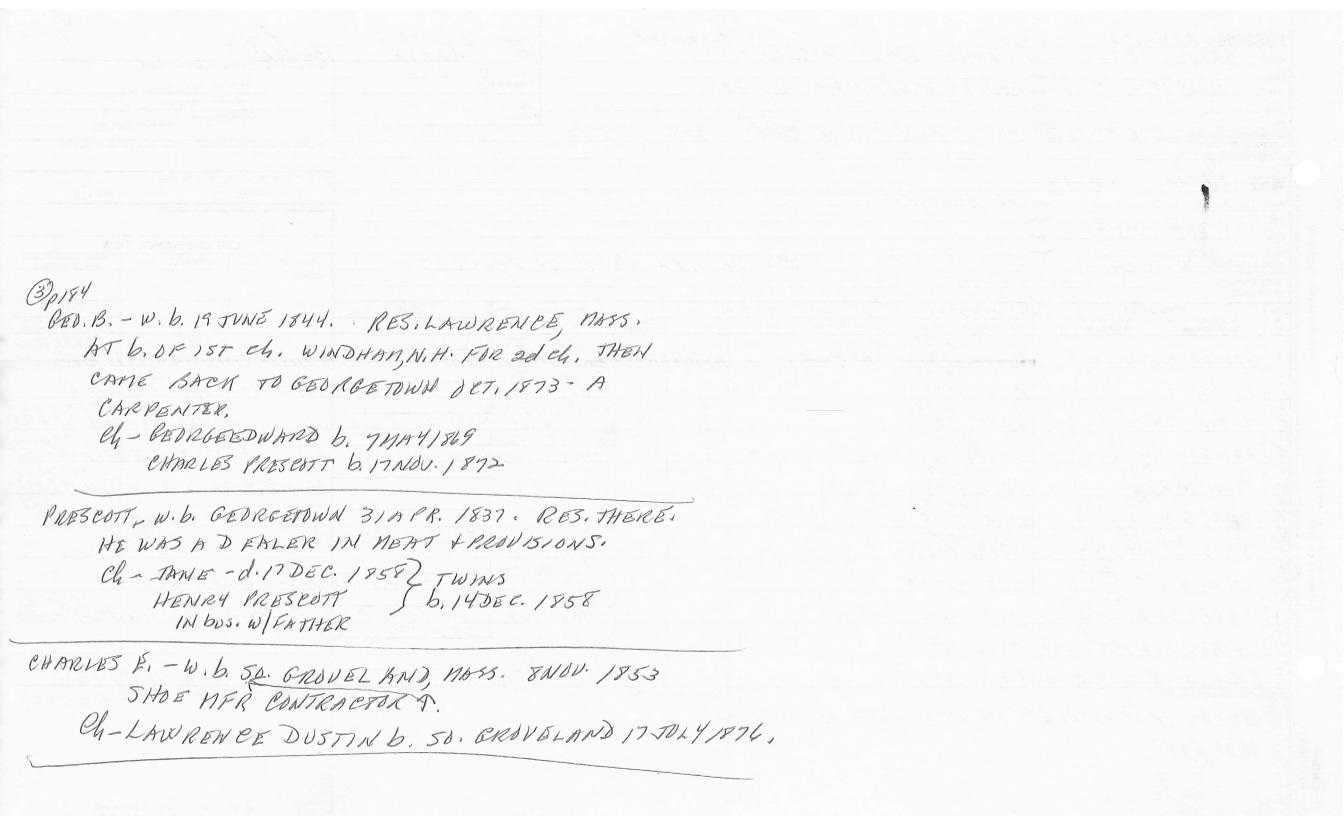 ③ p184
GEO. B. - W. b. 19 JUNE 1844. RES. LAWRENCE, MASS.
AT b. OF 1ST Ch. WINDHAM, N.H. FOR 2d Ch. THEN
CAME BACK TO GEORGETOWN OCT. 1873 - A
CARPENTER.
Ch - GEORGE EDWARD b. 7 MAY 1869
CHARLES PRESCOTT b. 17 NOV. 1872
PRESCOTT, W. b. GEORGETOWN 31 APR. 1837. RES. THERE.
HE WAS A DEALER IN MEAT & PROVISIONS.
Ch - JANE - d. 17 DEC. 1858 } TWINS
HENRY PRESCOTT } b. 14 DEC. 1858
IN bus. W/ FATHER
CHARLES E. - W. b. SO. GROVELAND, MASS. 8 NOV. 1853
SHOE MFR CONTRACTOR ↑.
Ch - LAWRENCE DUSTIN b. SO. GROVELAND 17 JULY 1876.